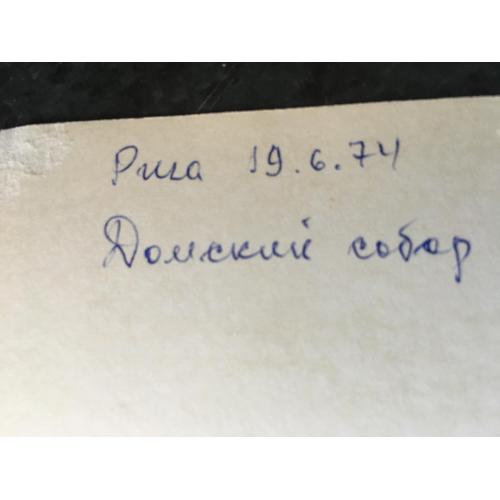 Рига 19.6.74
Домский собор